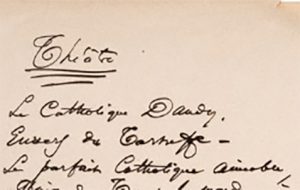 Théâtre
Le Catholique Dandy,
Envers du Tartuffe –
Le parfait Catholique aimable